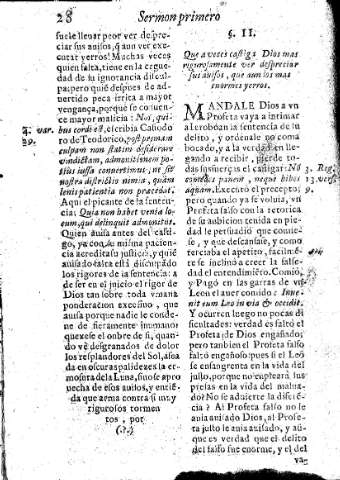 28 Sermon primero
suele llevar peor ver despre-
ciar sus auisos, q̃ aun ver exe-
cutar yerros! Muchas veces
quien falta, tiene en la crue-
dad de su ignorancia discul-
pa; pero quiẽ despues de ad-
uertido peca irrita a mayor
vengança, porquè se conuen-
ce mayor malicia: Nos, qui-
bus cordi est, escribia Casiodo
ro de Teodorico,
culpam non statim desiderare
vindictam, admonitionem po-
tius iussa conuertimus, ne sit
nostra districtio nimia, quam
lenis patientia non præcedat.
Aqui el picante de la senten-
cia; Quia non habet venia lo-
cum, qui delinquit admonitus.
Quien auisa antes del casti-
go, ya cõ la misma pacien-
cia acredita su justicia, y quiẽ
auisado falta està disculpado
los rigores de la sentencia: a
de ser en el juicio el rigor de
Dios tan sobre toda vmana
ponderacion excesiuo, que
auisa porque nadie le conde-
ne de fieramente inumano:
quexese el onbre de si, quan-
do vè desgranados de dolor
los resplandores del Sol, asoa
da en oscuras palidezes la er-
mosura de la Luna, sino se apro
uecha de esos auisos, y entiẽ-
da que arma contra si mas
rigurosos tormen
tos, por
(.?.)
§. II.
Que a veces castiga Dios mas
rigurosamente ver despreciar
sus auisos, que aun los mas
enormes yerros.
MANDALE Dios a vn
Profeta vaya a intimar
a Ieroboan la sentencia de su
delito, y ordenale no coma
bocado, y a la verdad en lle-
gando a recibir, pierde to-
das sus fuerças el castigar: Nõ
comedes panem, neque bibes
aquam. Executò el precepto;
pero quando ya se voluia, vn
Profeta falso con la retorica
de su anbicion tenida en pie-
dad le persuadiò que comie-
se, y que descansase, y como
terciaba el apetito, facilmẽ-
te se inclinò a creer la false-
dad el entendimiẽto. Comiò,
y Pagò en las garras de vn
Leon el auer comido: Inue-
nit eum Leo in via & occidit.
Y ocurren luego no pocas di
ficultades: verdad es faltò el
Profeta de Dios engañado;
pero tambien el Profeta falso
faltò engañoso pues si el Leõ
se ensangrenta en la vida del
justo, porque no enplearà sus
presas en la vida del malua-
do? No se aduierte la diferẽ-
cia? Al Profeta falso no le
auia auisado Dios, al Profe-
ta justo le auia auisado, y aũ-
que es verdad que el delito
del falso fue enorme, y el del
va-
4. var.
3. Reg.
13. vers.
9.